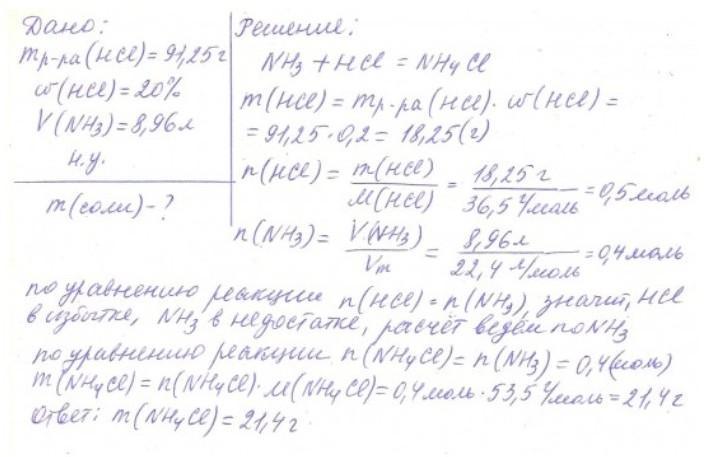 Дано:
mр-ра(HCl)=91,25г
ω(HCl)=20%
V(NH3)=8,96л
н.у.
m(соли)-?
Решение:
NH3+HCl=NH4Cl
m(HCl)=mр-ра(HCl)·ω(HCl)=
=91,25·0,2=18,25(г)
n(HCl)= m(HCl)/M(HCl) = 18,25г/36,5г/моль =0,5моль
n(NH3)= V(NH3)/Vm = 8,96л/22,4л/моль =0,4моль
по уравнению реакции n(HCl)=n(NH3), значит, HCl
в избытке, NH3 в недостатке, расчёт ведём по NH3
по уравнению реакции n(NH4Cl)=n(NH3)=0,4(моль)
m(NH4Cl)=n(NH4Cl)·M(NH4Cl)=0,4моль·53,5г/моль=21,4г
Ответ: m(NH4Cl)=21,4г